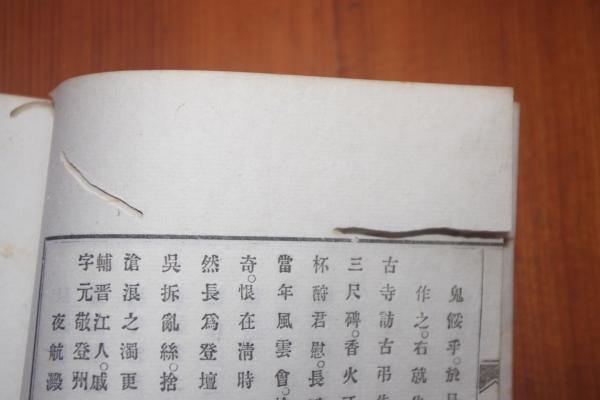 鬼餒乎。於
作之。右就
古寺訪古弔
三尺碑。香火
杯酹君慰。長
當年風雲會。
奇。恨在清時
然長爲登壇
吳拆亂絲。捨
滄浪之濁更
輔晋江人。戚
字元敬登州
夜航澱